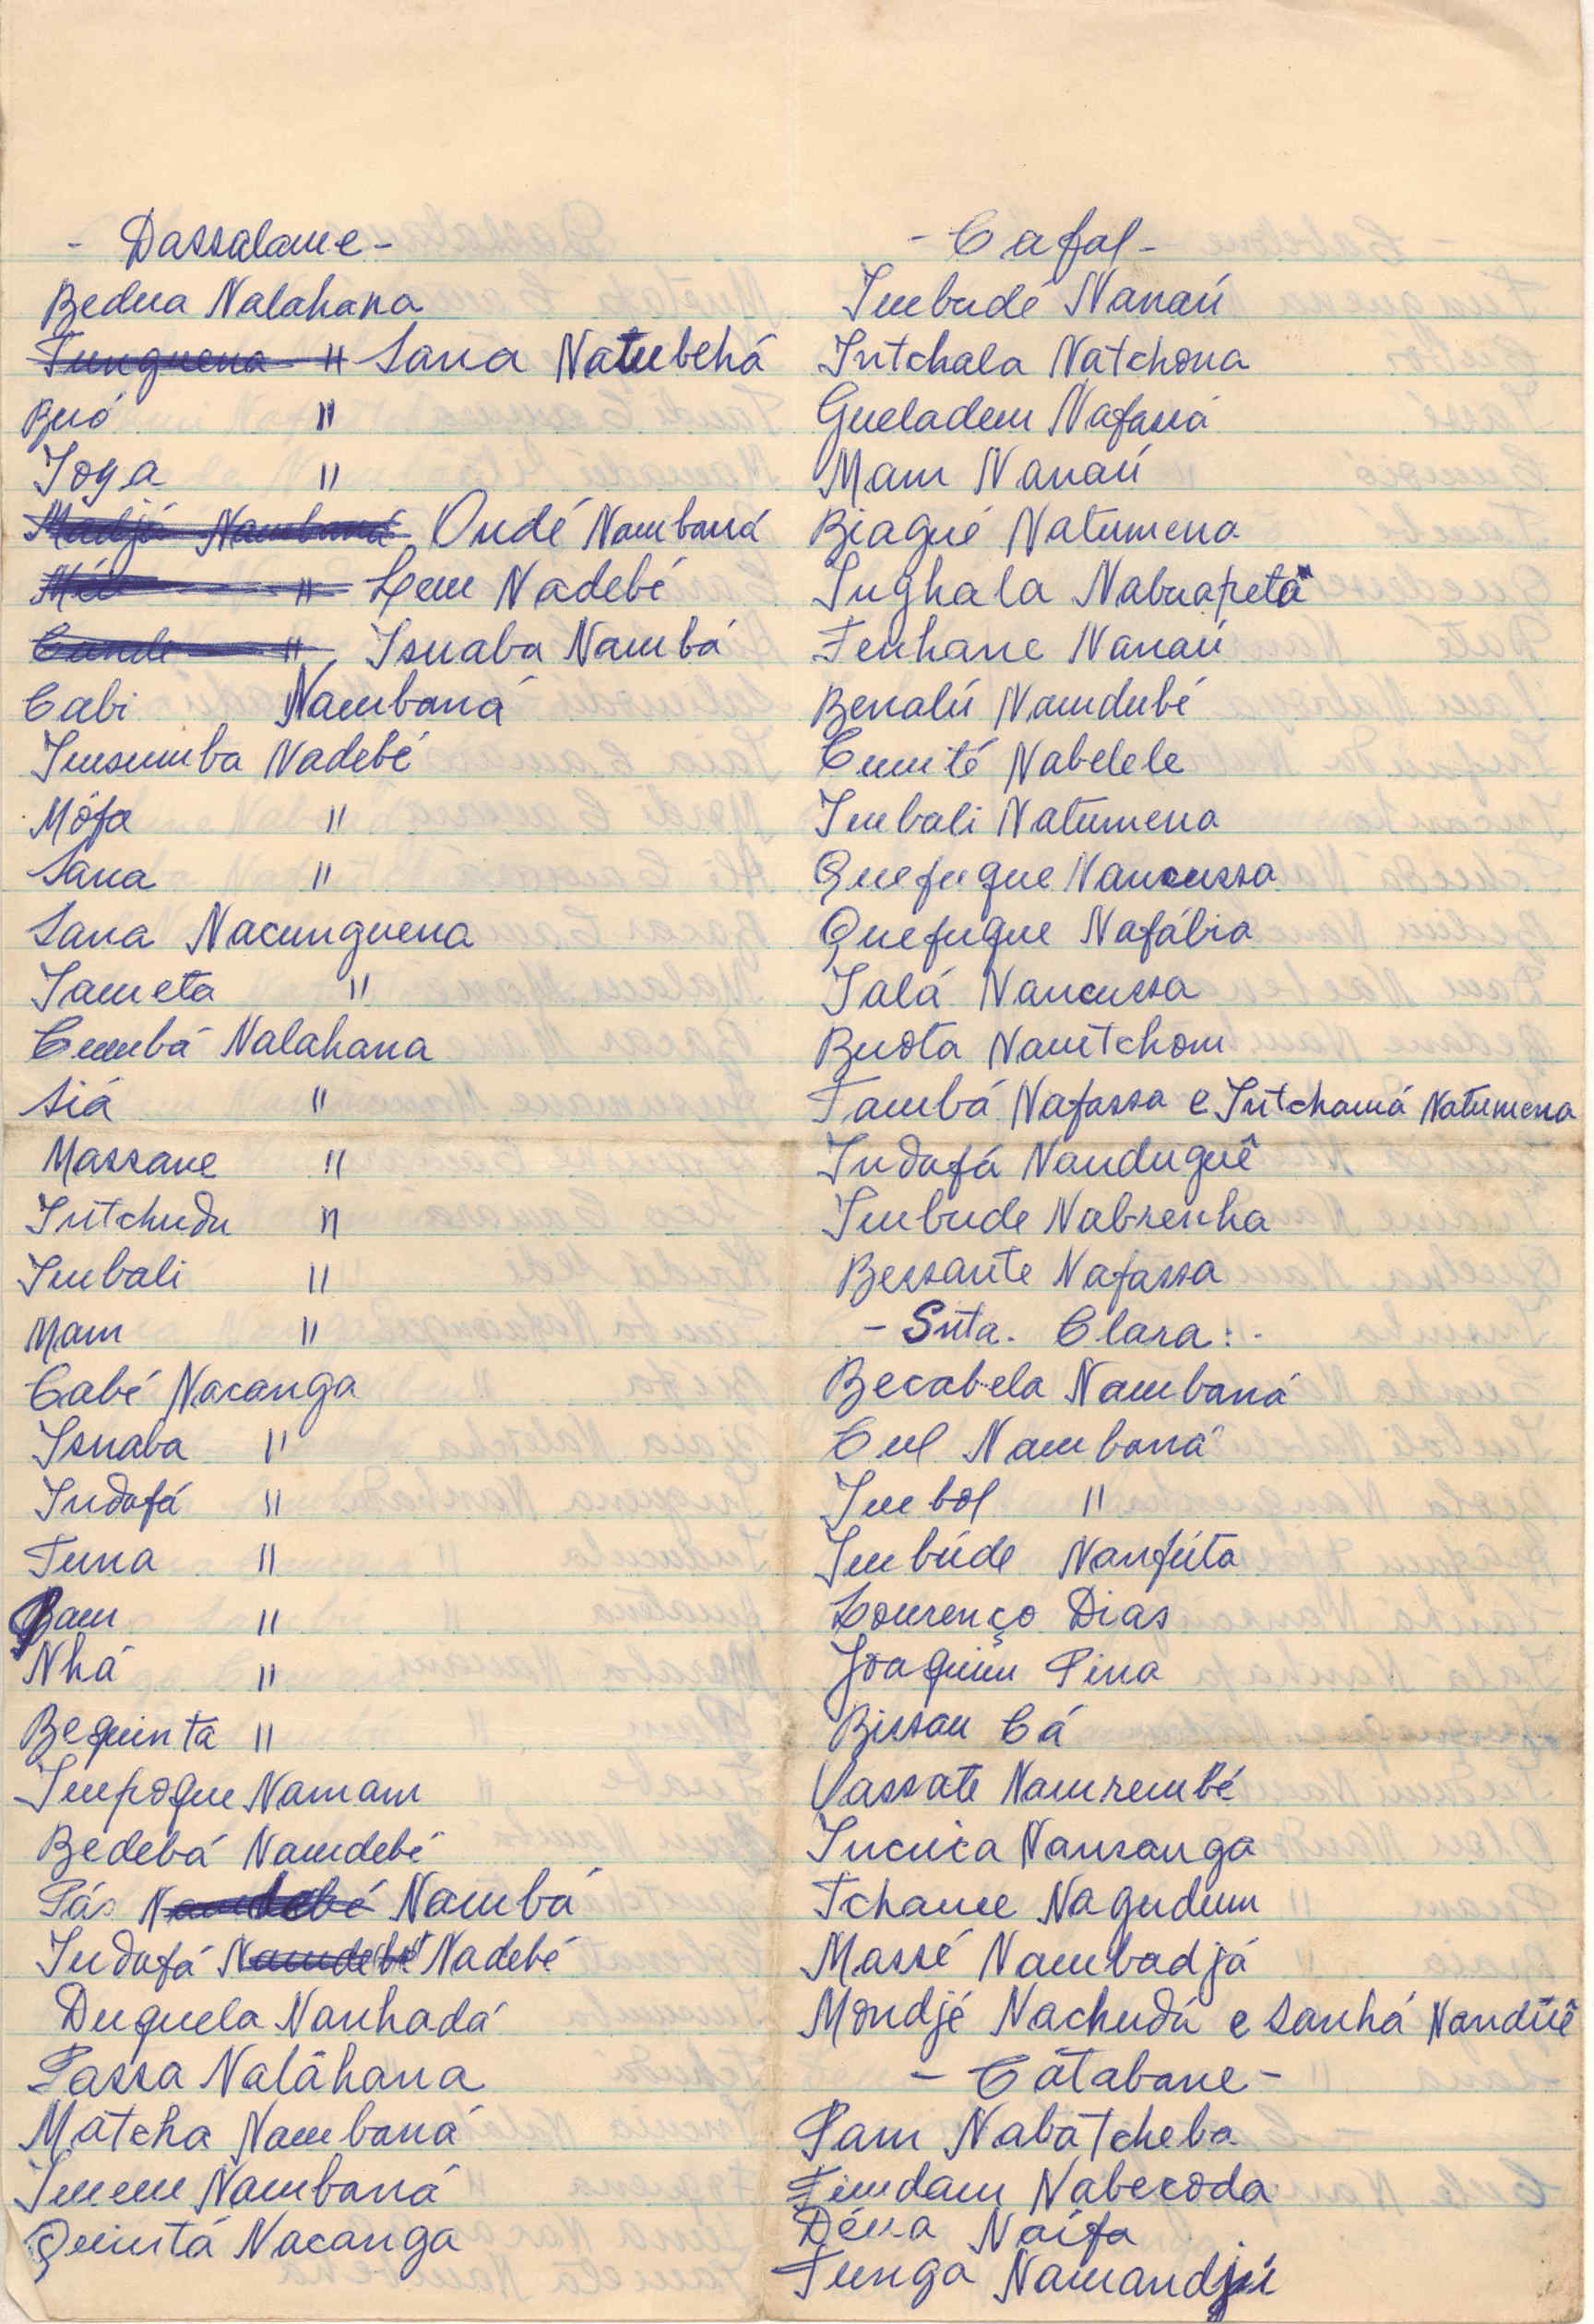 - Dassalame -
Bedna Nalahana
Funguena " Sana Natubehá
Buó "
Ioga "
Madjá Nambaná Ondé Nambaná
" Lem Nadebé
Cunde " Isnaba Nambá
Cabi Nambaná
Imsumba Nadebé
Mófa "
Sana "
Sana Nacunguena
Iameta "
Cumbá Nalahana
Siá "
Massane "
Intchudu "
Imbali "
Mam "
Cabé Nacanga
Isnaba "
Indafá "
Funa "
Bam "
Nhá "
Bequinta "
Impoque Namam
Bedebá Namdebé
Pás Namdebé Nambá
Indafá Namdebé Nadebé
Duquela Nanhadá
Passa Naláhana
Matcha Nambaná
Imem Nambaná
Quintá Nacanga
- Cafal -
Imbudé Nanaú
Intchala Natchona
Gueladem Nafaná
Mam Nanaú
Biagué Natumena
Inghala Nabuapetá
Fenhane Nanaú
Benalú Namdubé
Cumté Nabelele
Imbali Natumena
Quefugue Nancussa
Quefugue Nafábia
Ialá Nancussa
Buota Namtchom
Fambá Nafassa e Intchamá Natumena
Indafá Nanduguê
Imbude Nabrenha
Bessante Nafassa
- Snta. Clara: -
Becabela Nambaná
Cul Nambaná
Imbol "
Imbúde Nanfúta
Lourenço Dias
Joaquim Pina
Bissau Cá
Vassate Namrembé
Incuica Nansanga
Tchame Nagudum
Massé Nambadjá
Mondjé Nachudú e Sanhá Nanduê
- Cátabane -
Pam Nabatcheba
Fimdam Nabecoda
Déna Naífa
Funga Namandjú